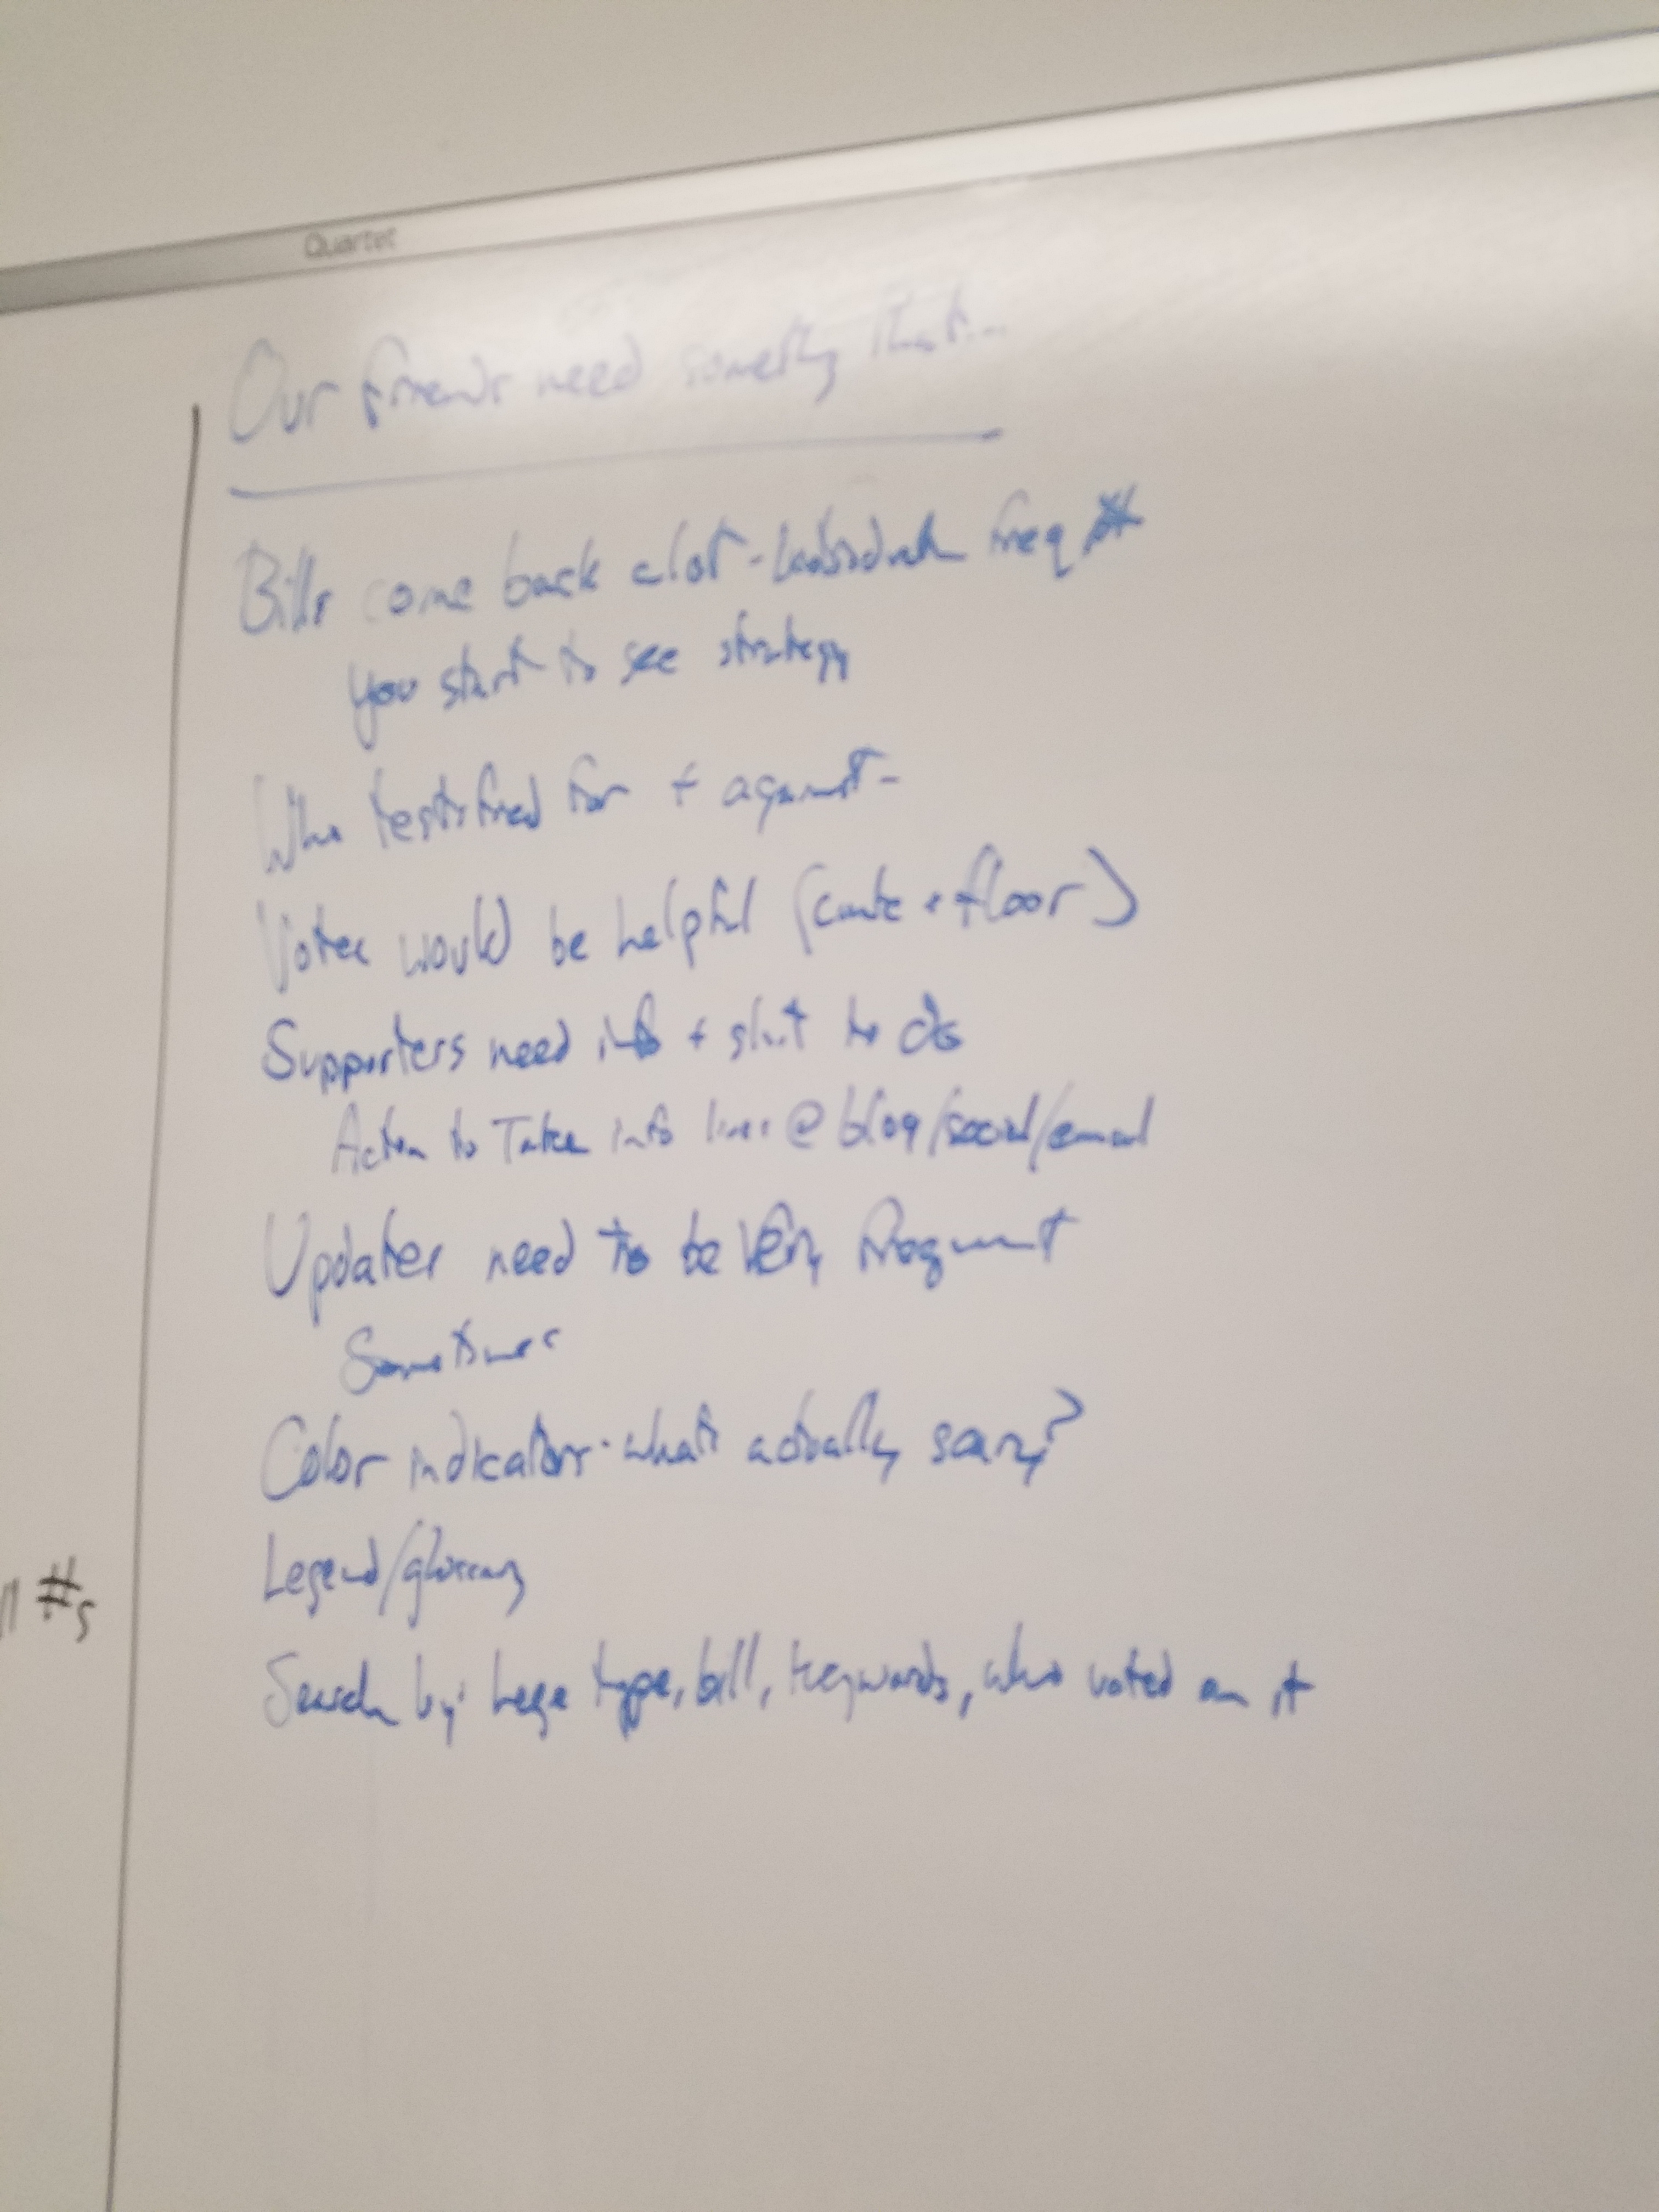 Quartet
Our friends need something that...
Bills come back alot - freq #
you start to see strategy
Who testified for + against -
Votes would be helpful (cmte + floor)
Supporters need info + shit to do
Action to Take info lives @ blog/social/email
Updates need to be VERY frequent
Sometimes
Color indicators - what's actually scary?
Legend/glossary
#s
Search by: Lege type, bill, keywords, who voted on it